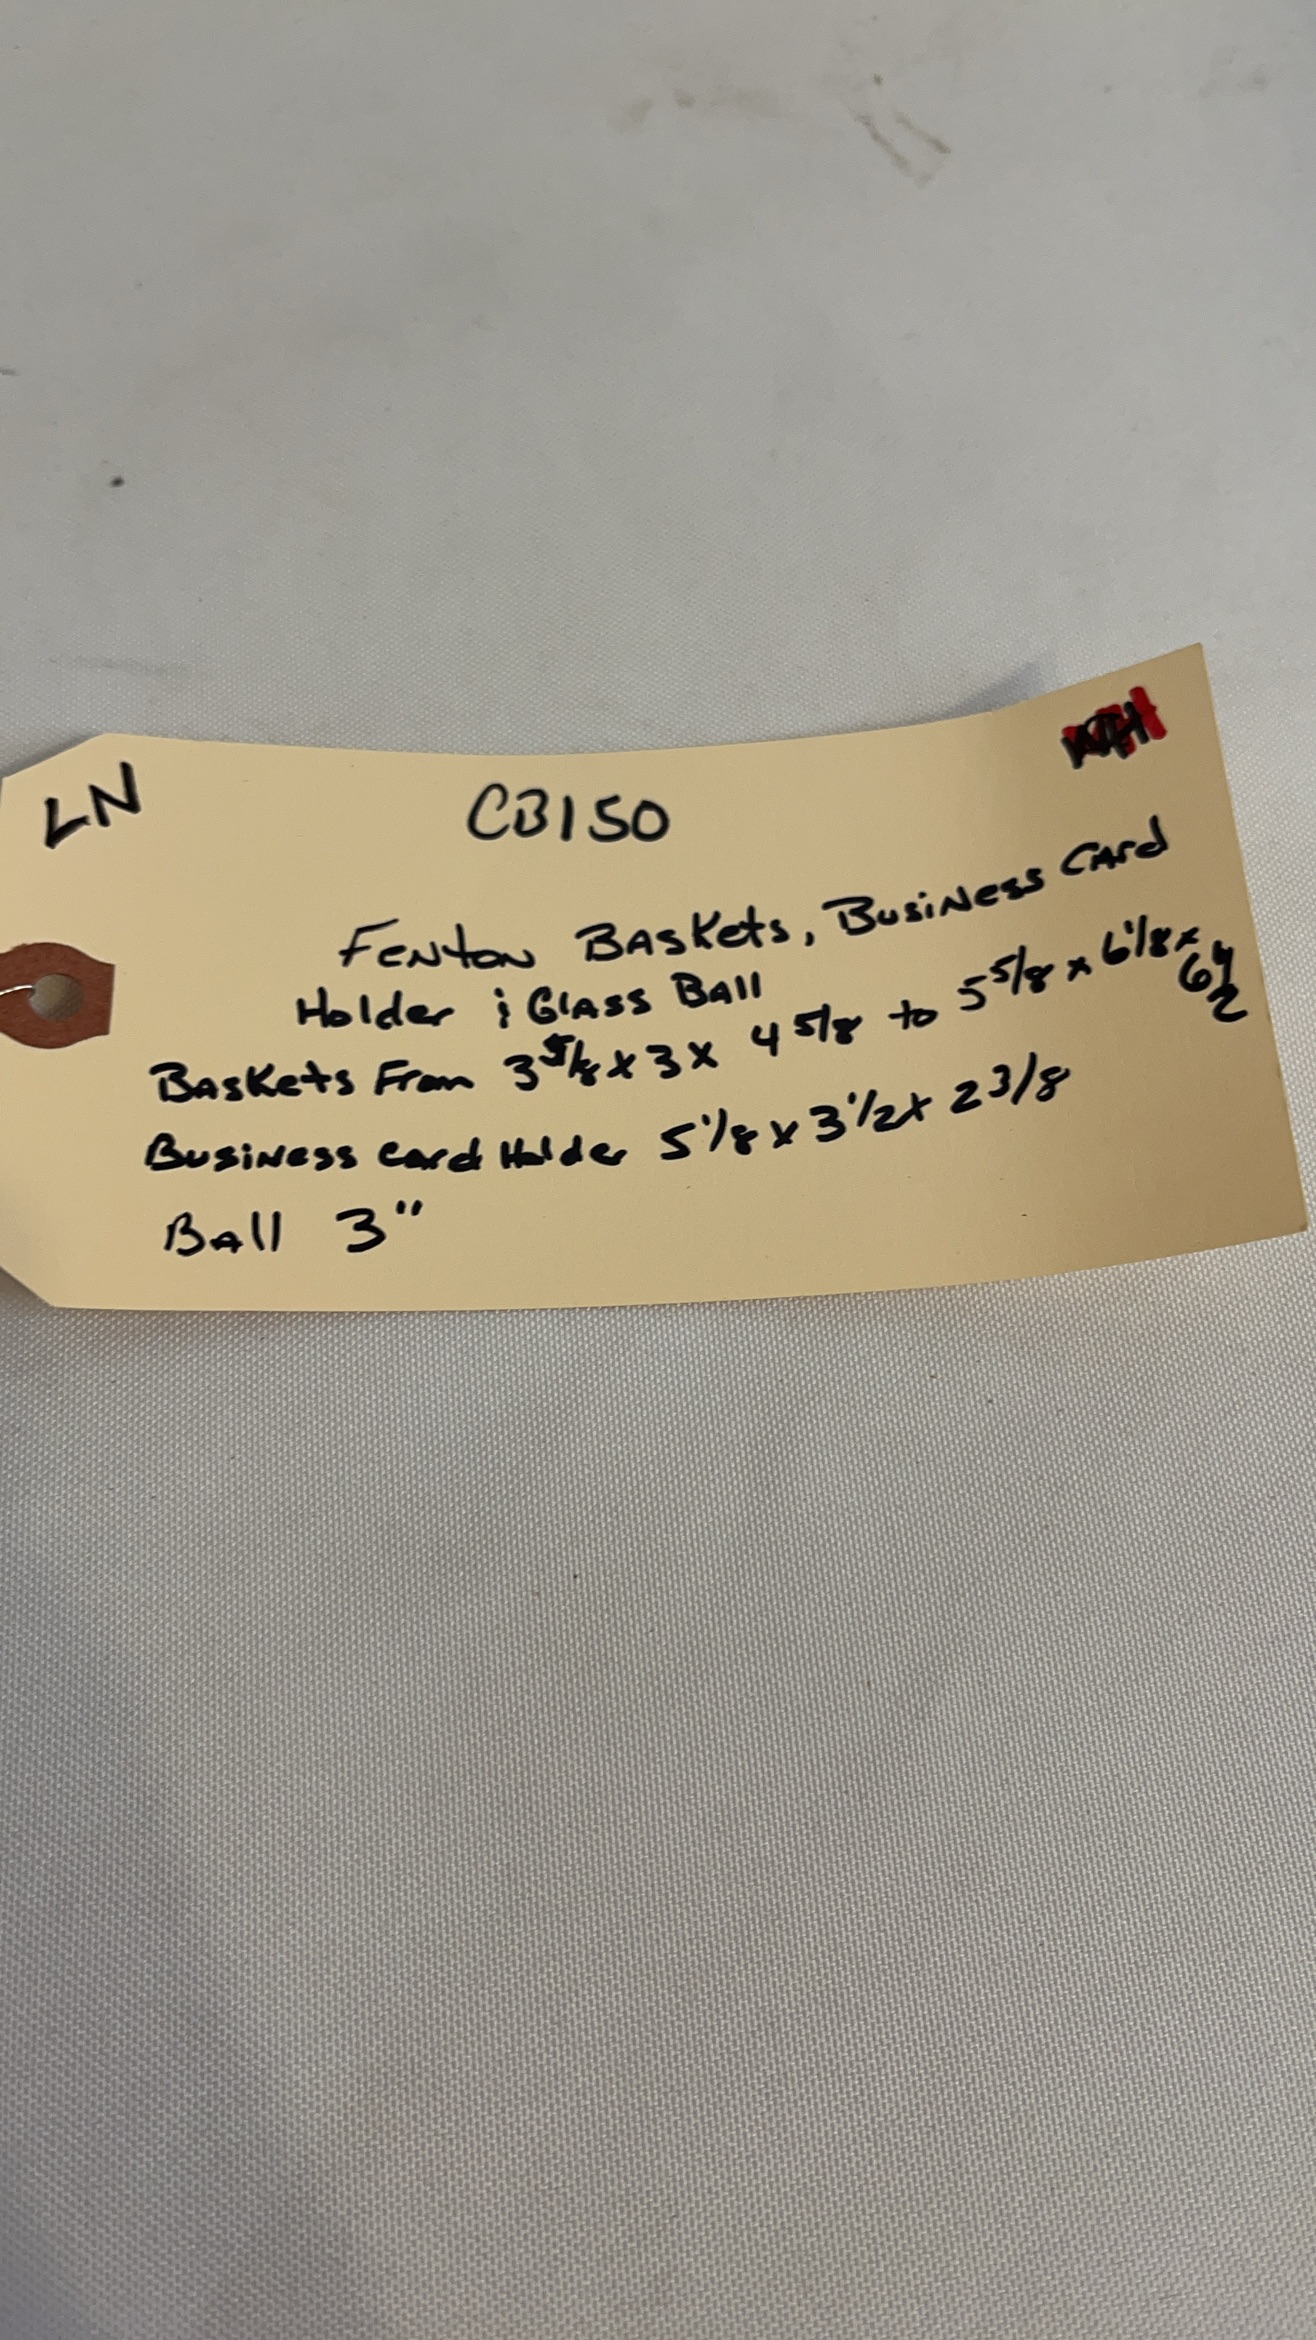 LN
CB150
Fenton Baskets, Business Card
Holder & Glass Ball
Baskets From 3 5/8 x 3 x 4 5/8 to 5 5/8 x 6 1/8 x 6 1/2
Business Card Holder 5 1/8 x 3 1/2 x 2 3/8
Ball 3"